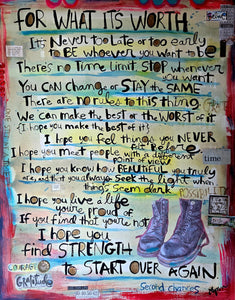 FOR WHAT IT'S WORTH
It's NEVER too Late or too early
to BE whoever you want to be!
There's no Time Limit. Stop whenever
you want
YOU CAN change or STAY the SAME
There are no rules to this thing
We can make the best or the WORST of it
(I hope you make the best of it)
I hope you feel things you NEVER
felt before
I hope you meet people with a different
point of view
time
I hope you know how BEAUTIFUL you truly
are, and that you always seek the light when
things seem dark
I hope you live a life
you're proud of
If you find that you're not
I hope you
find STRENGTH
to START OVER AGAIN.
COURAGE
GRATitude
Second chances